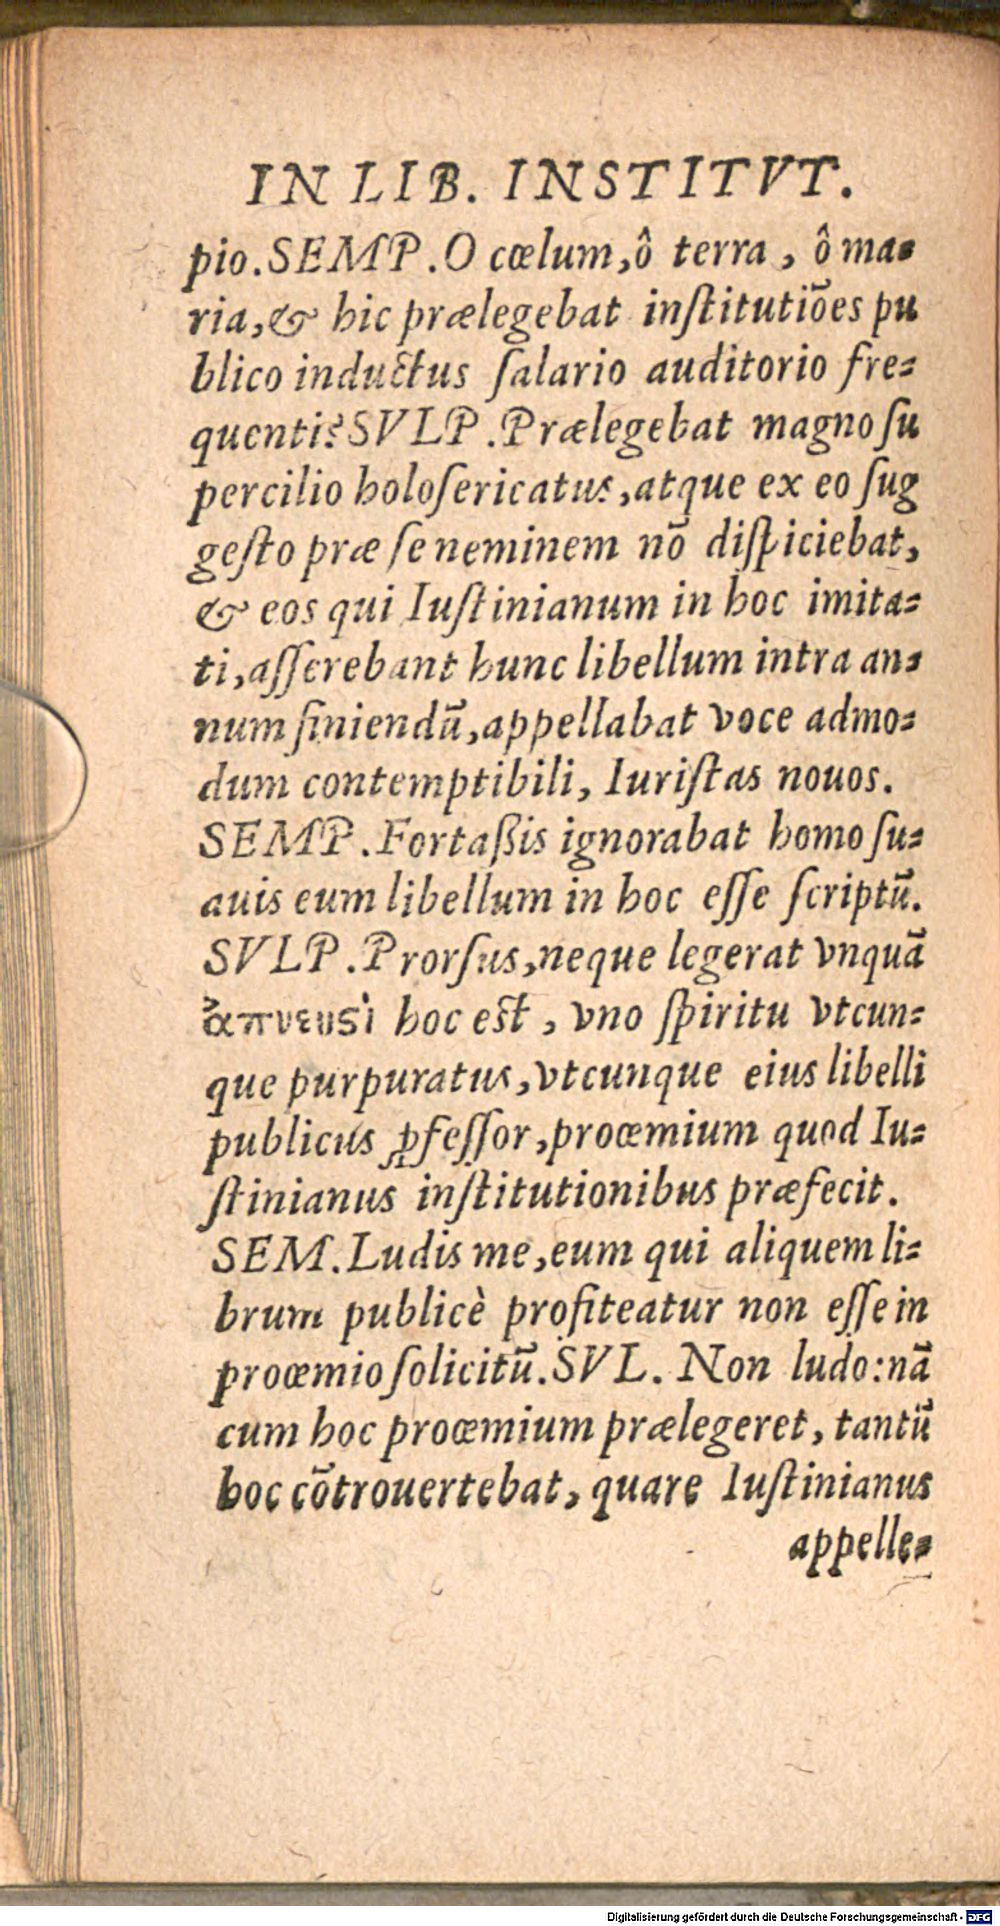 IN LIB. INSTITVT.
pio. SEMP. O cœlum, ô terra, ô ma⸗
ria, & hic prælegebat inſtitutiões pu
blico inductus ſalario auditorio fre⸗
quenti? SVLP. Prælegebat magno ſu
percilio holoſericatus, atque ex eo ſug
geſto præ ſe neminem nō diſpiciebat,
& eos qui Iuſtinianum in hoc imita⸗
ti, aſſerebant hunc libellum intra an⸗
num finiendū, appellabat voce admo⸗
dum contemptibili, Iuriſtas nouos.
SEMP. Fortaßis ignorabat homo ſu⸗
auis eum libellum in hoc eſſe ſcriptū.
SVLP. Prorſus, neque legerat vnquā
ἀπνευςὶ hoc est, vno ſpiritu vtcun⸗
que purpuratus, vtcunque eius libelli
publicus ꝓfeſſor, proœmium quod Iu⸗
ſtinianus inſtitutionibus præfecit.
SEM. Ludis me, eum qui aliquem li⸗
brum publicè profiteatur non eſſe in
proœmio ſolicitū. SVL. Non ludo: nā
cum hoc proœmium prælegeret, tantū
hoc cōtrouertebat, quare Iuſtinianus
appelle⸗
Digitalisierung gefördert durch die Deutsche Forschungsgemeinschaft - DFG